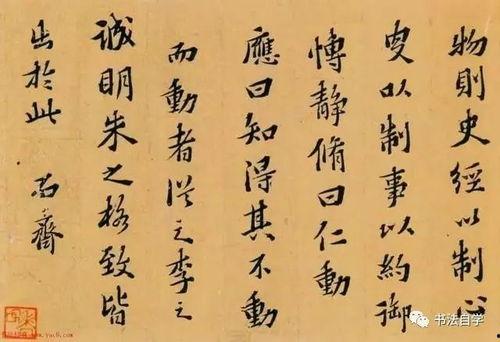 物則史經以制心
以制事以約御
博靜脩曰仁動
應曰知得其不動
而動者從之李之
誠明朱之格致皆
出於此
齋
书法自学